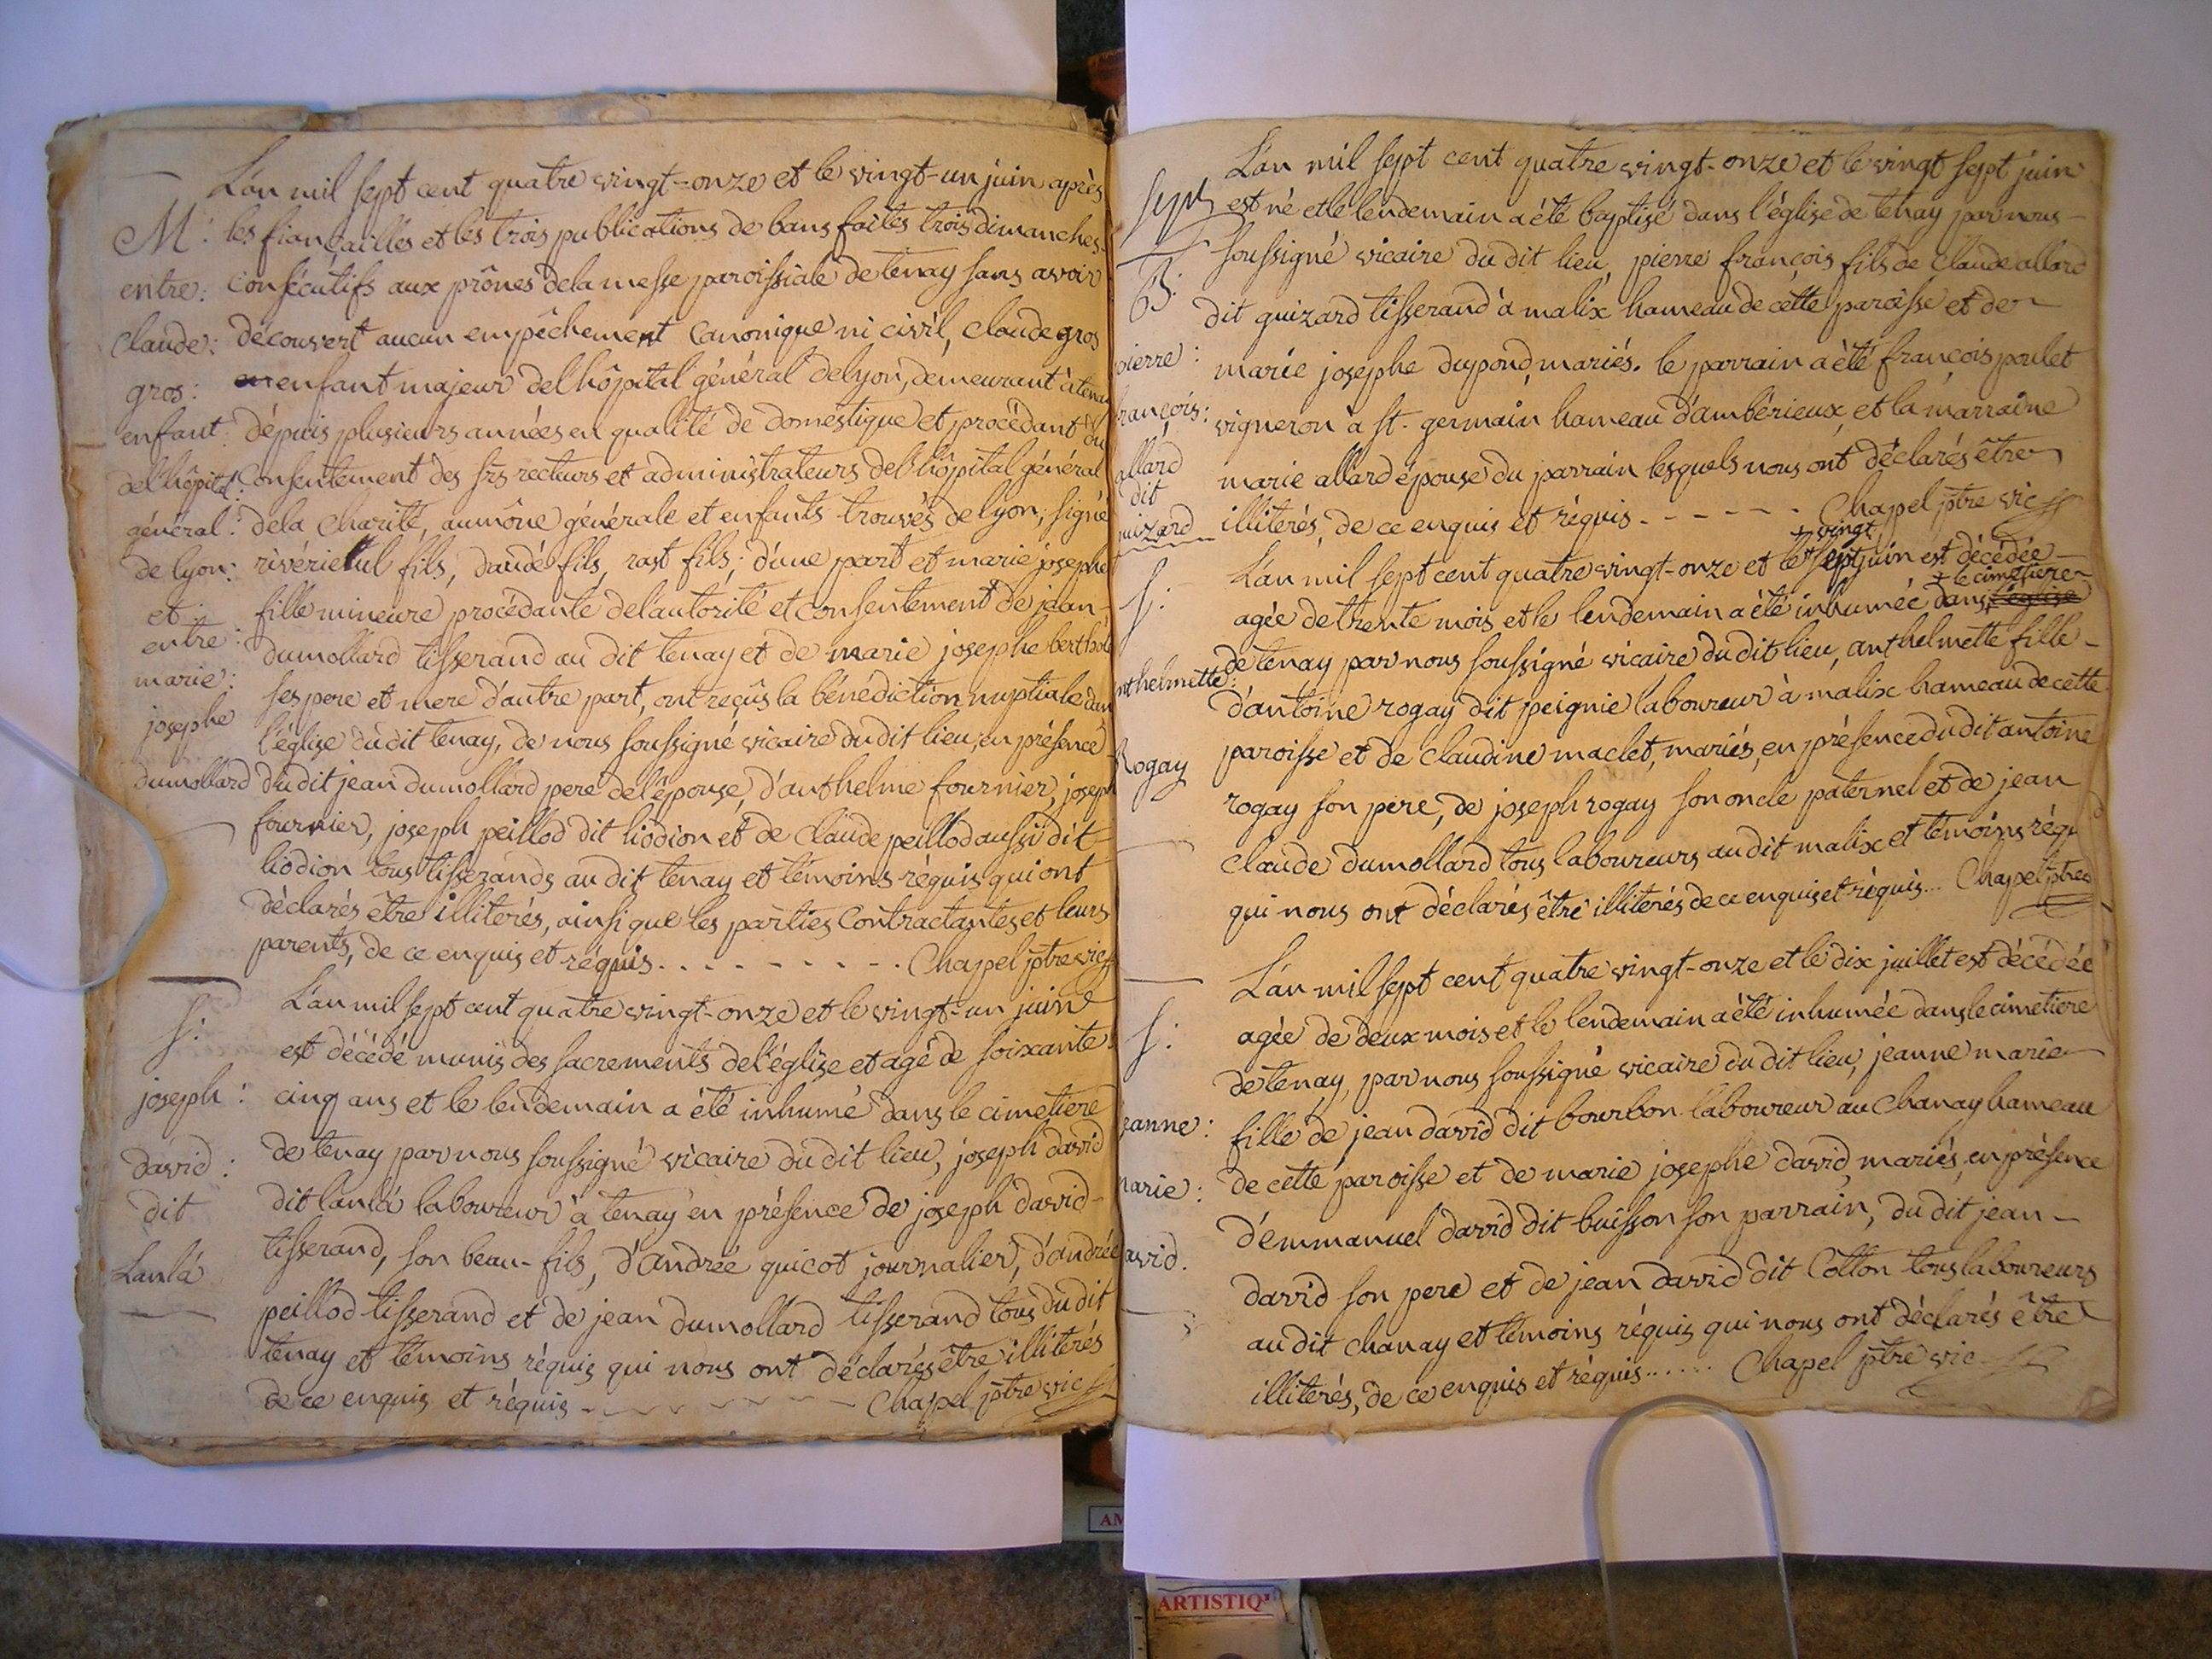 L'an mil sept cent quatre vingt-onze et le vingt-un juin après
M: les fiançailles et les trois publications de bans faites trois dimanches
entre: consécutifs aux prônes de la messe paroissiale de tenay sans avoir
claude: découvert aucun empêchement canonique ni civil, claude gros
gros: enfant majeur del'hôpital général de lyon, demeurant à tenay
enfant: dépuis plusieurs années en qualité de domestique et procédant du
del'hôpital: consentement des srs recteurs et administrateurs del'hôpital général
général: dela charité, aumône générale et enfants trouvés de lyon, signé
de lyon: fils, daudé fils, rast fils; d'une part et marie josephe
et fille mineure procédante del'autorité et consentement de jean-
entre: dumollard tisserand au dit tenay et de marie josephe
marie: ses pere et mere d'autre part, ont reçûs la bénédiction nuptiale dans
josephe l'église du dit tenay, de nous soussigné vicaire du dit lieu, en présence
dumollard du dit jean dumollard pere del'épouse, d'anthelme fournier, joseph
fournier, joseph peillod dit liodion et de claude peillod aussi dit
liodion tous tisserands au dit tenay et témoins réquis qui ont
déclarés être illiterés, ainsi que les parties contractantes et leurs
parents, de ce enquis et réquis. . . . . . . . . Chapel ptre vic
L'an mil sept cent quatre vingt-onze et le vingt-un juin
S: est décédé munis des sacrements de l'église et agé de soixante
joseph: cinq ans et le lendemain a été inhumé dans le cimetiere
david: de tenay par nous soussigné vicaire du dit lieu, joseph david
dit dit lanlá laboureur à tenay en présence de joseph david-
Lanlá tisserand, son beau-fils, d'andrée quicot journalier, d'andrée
peillod tisserand et de jean dumollard tisserand tous du dit
tenay et témoins réquis qui nous ont déclarés être illiterés
de ce enquis et réquis - - - - - Chapel ptre vic
L'an mil sept cent quatre vingt-onze et le vingt sept juin
sept est né et le lendemain a été baptisé dans l'église de tenay par nous-
B: soussigné vicaire du dit lieu, pierre françois fils de claude allard
dit guizard tisserand à malix hameau de cette paroisse et de
pierre: marie josephe dupond, mariés. le parrain a été françois poulet
françois: vigneron à st. germain, hameau d'ambérieux, et la marraine
allard
dit marie allard épouse du parrain lesquels nous ont déclarés être
guizard illiterés, de ce enquis et réquis - - - - - - Chapel ptre vic
+ vingt
L'an mil sept cent quatre vingt-onze et le + sept juin est décédée-
+ le cimetiere
S: agée de trente mois et le lendemain a été inhumée dans l'église
nthelmette: de tenay par nous soussigné vicaire du dit lieu, anthelmette fille-
d'antoine rogay dit peignie laboureur à malix hameau de cette
Rogay paroisse et de claudine maclet, mariés, en présence du dit antoine
rogay son pere, de joseph rogay son oncle paternel et de jean
claude dumollard tous laboureurs au dit malix et témoins réqu
qui nous ont déclarés être illitérés de ce enquis et réquis... Chapel ptre
L'an mil sept cent quatre vingt-onze et le dix juillet est décédée
S: agée de deux mois et le lendemain a été inhumée dans le cimetiere
de tenay, par nous soussigné vicaire du dit lieu, jeanne marie
jeanne: fille de jean david dit bourbon laboureur au chanay hameau
marie: de cette paroisse et de marie josephe david, mariés, en présence
d'emmanuel david dit buisson son parrain, du dit jean-
david. david son pere et de jean david dit Cotton tous laboureurs
au dit chanay et témoins réquis qui nous ont déclarés être
illiterés, de ce enquis et réquis...... Chapel ptre vic
ARTISTIQ